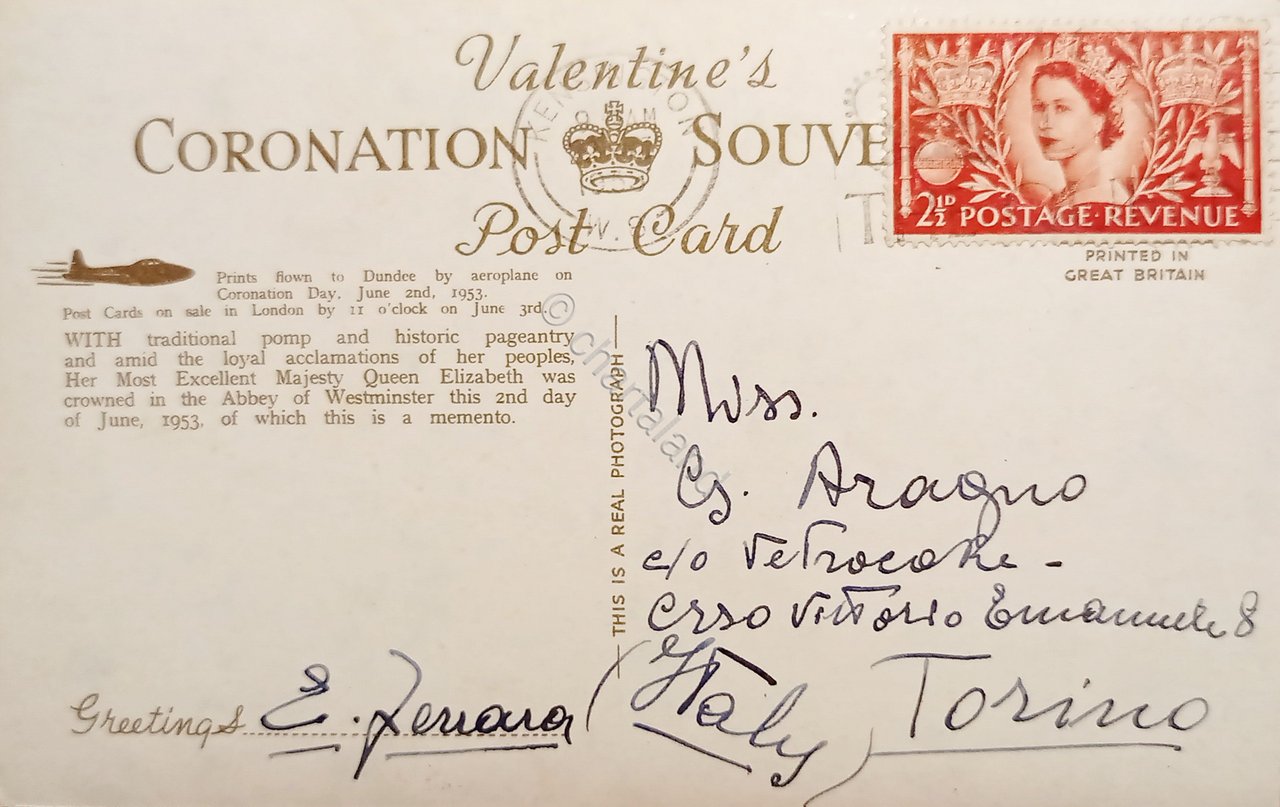 Valentine's
CORONATION SOUVE
Post Card
KEN ON
AM
W.
2½D POSTAGE·REVENUE
PRINTED IN
GREAT BRITAIN
Prints flown to Dundee by aeroplane on
Coronation Day, June 2nd, 1953.
Post Cards on sale in London by 11 o'clock on June 3rd.
WITH traditional pomp and historic pageantry
and amid the loyal acclamations of her peoples,
Her Most Excellent Majesty Queen Elizabeth was
crowned in the Abbey of Westminster this 2nd day
of June, 1953, of which this is a memento.
THIS IS A REAL PHOTOGRAPH
© chartaland
Miss.
Cs. Aragno
c/o Vetrocoke -
Crso Vittorio Emanuele 8
(Italy) Torino
Greetings E. Ferrara